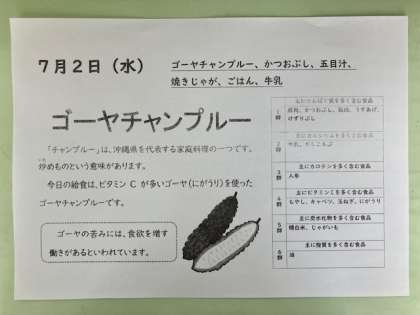 7月2日（水）
ゴーヤチャンプルー、かつおぶし、五目汁、
焼きじゃが、ごはん、牛乳
ゴーヤチャンプルー
「チャンプルー」は、沖縄県を代表する家庭料理の一つです。
炒めものという意味があります。
今日の給食は、ビタミン C が多いゴーヤ（にがうり）を使った
ゴーヤチャンプルーです。
ゴーヤの苦みには、食欲を増す
働きがあるといわれています。
1群
主にたんぱく質を多く含む食品
けずりぶし
2群
主にカルシウムを多く含む食品
3群
主にカロテンを多く含む食品
人参
4群
主にビタミンCを多く含む食品
もやし、キャベツ、玉ねぎ、にがうり
5群
主に炭水化物を多く含む食品
精白米、じゃがいも
6群
主に脂質を多く含む食品
油